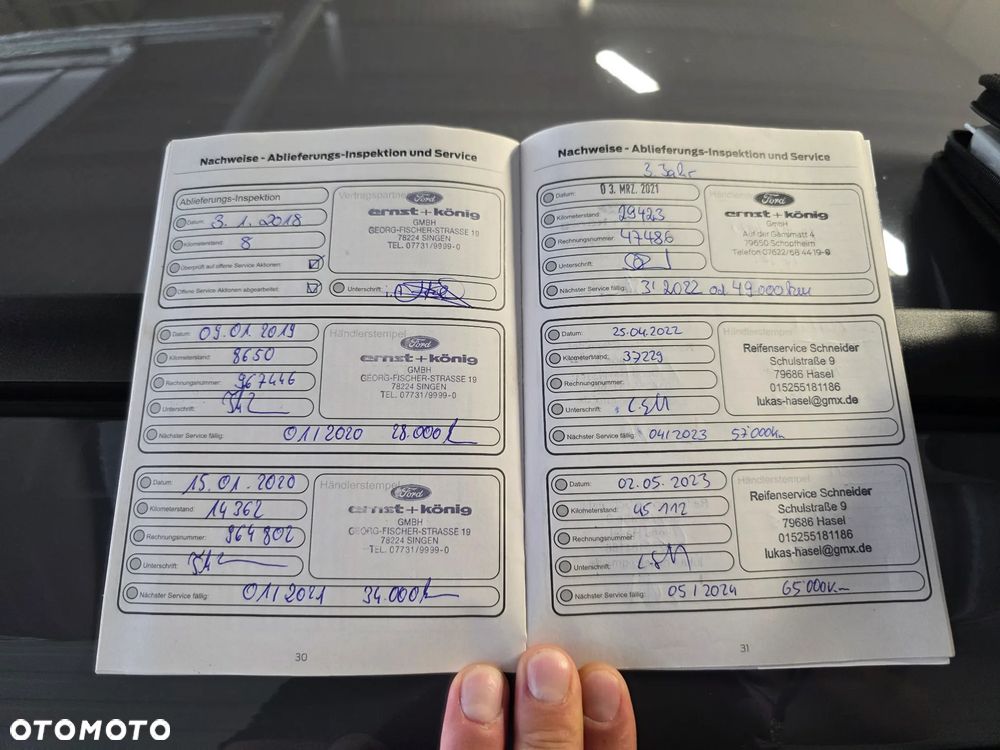 Nachweise - Ablieferungs-Inspektion und Service
Ablieferungs-Inspektion
Datum: 3.1.2018
Kilometerstand: 8
Überprüft auf offene Service Aktionen:
Offene Service Aktionen abgearbeitet:
Vertragspartner
Ford
ernst+könig
GMBH
GEORG-FISCHER-STRASSE 19
78224 SINGEN
TEL. 07731/9999-0
Unterschrift:
Datum: 09.01.2019
Kilometerstand: 8650
Rechnungsnummer: 967446
Unterschrift:
Händlerstempel
Ford
ernst+könig
GMBH
GEORG-FISCHER-STRASSE 19
78224 SINGEN
TEL. 07731/9999-0
Nächster Service fällig: 01/2020 28.000
Datum: 15.01.2020
Kilometerstand: 14362
Rechnungsnummer: 964802
Unterschrift:
Händlerstempel
Ford
ernst+könig
GMBH
GEORG-FISCHER-STRASSE 19
78224 SINGEN
TEL. 07731/9999-0
Nächster Service fällig: 01/2021 34.000
30
Nachweise - Ablieferungs-Inspektion und Service
3. Jahr
Datum: 03. MRZ. 2021
Kilometerstand: 29423
Rechnungsnummer: 47486
Unterschrift:
Ford
ernst+könig
GmbH
Auf der Gansmatt 4
79650 Schopfheim
Telefon 07622/68 44 19-8
Nächster Service fällig: 3/2022 od 49.000km
Datum: 25.04.2022
Kilometerstand: 37229
Rechnungsnummer:
Unterschrift:
Händlerstempel
Reifenservice Schneider
Schulstraße 9
79686 Hasel
015255181186
lukas-hasel@gmx.de
Nächster Service fällig: 04/2023 57'000km
Datum: 02.05.2023
Kilometerstand: 45112
Rechnungsnummer:
Unterschrift:
Händlerstempel
Reifenservice Schneider
Schulstraße 9
79686 Hasel
015255181186
lukas-hasel@gmx.de
Nächster Service fällig: 05/2024 65'000km
31
OTOMOTO